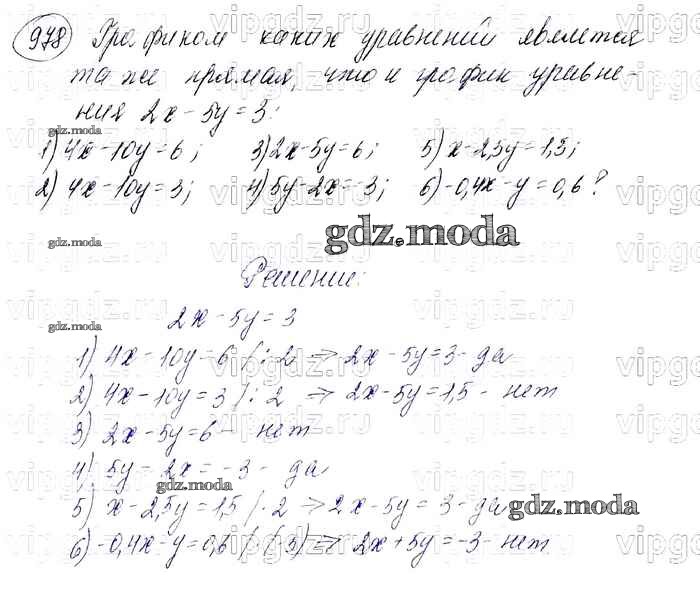 978 Графиком каких уравнений является
та же прямая, что и график уравне-
ния 2x - 5y = 3:
gdz.moda
1) 4x - 10y = 6; 3) 2x - 5y = 6; 5) x - 2,5y = 1,5;
2) 4x - 10y = 3; 4) 5y - 2x = -3; 6) -0,4x - y = 0,6?
gdz.moda
gdz.moda
Решение:
2x - 5y = 3
gdz.moda
1) 4x - 10y = 6 / : 2 => 2x - 5y = 3 - да
2) 4x - 10y = 3 / : 2 => 2x - 5y = 1,5 - нет
3) 2x - 5y = 6 - нет
4) 5y - 2x = -3 - да
gdz.moda
5) x - 2,5y = 1,5 / · 2 => 2x - 5y = 3 - да
gdz.moda
6) -0,4x - y = 0,6 / · (-5) => 2x + 5y = -3 - нет